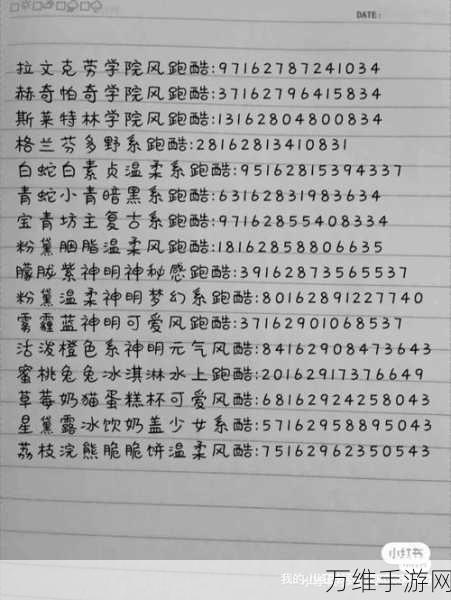 DATE:
拉文克劳学院风跑酷:97162787241034
赫奇帕奇学院风跑酷:37162796415834
斯莱特林学院风跑酷:13162804800834
格兰芬多野系跑酷:28162813410831
白蛇白素贞温柔系跑酷:95162815394337
青蛇小青暗黑系跑酷:63162831983634
宝青坊主复古系跑酷:97162855408334
粉黛胭脂温柔风跑酷:18162858806635
朦胧紫神明神秘感跑酷:39162873565537
粉黛温柔神明梦幻系跑酷:80162891227740
雾霾蓝神明可爱风跑酷:37162901068537
活泼橙色系神明元气风酷:84162908473643
蜜桃兔兔冰淇淋水上跑酷:20162917376649
草莓奶猫蛋糕杯可爱风酷:68162924258043
星黛露冰饮奶盖少女系酷:57162958895043
荔枝浣熊脆脆饼温柔风酷:75162962350543
小红书
万维手游网